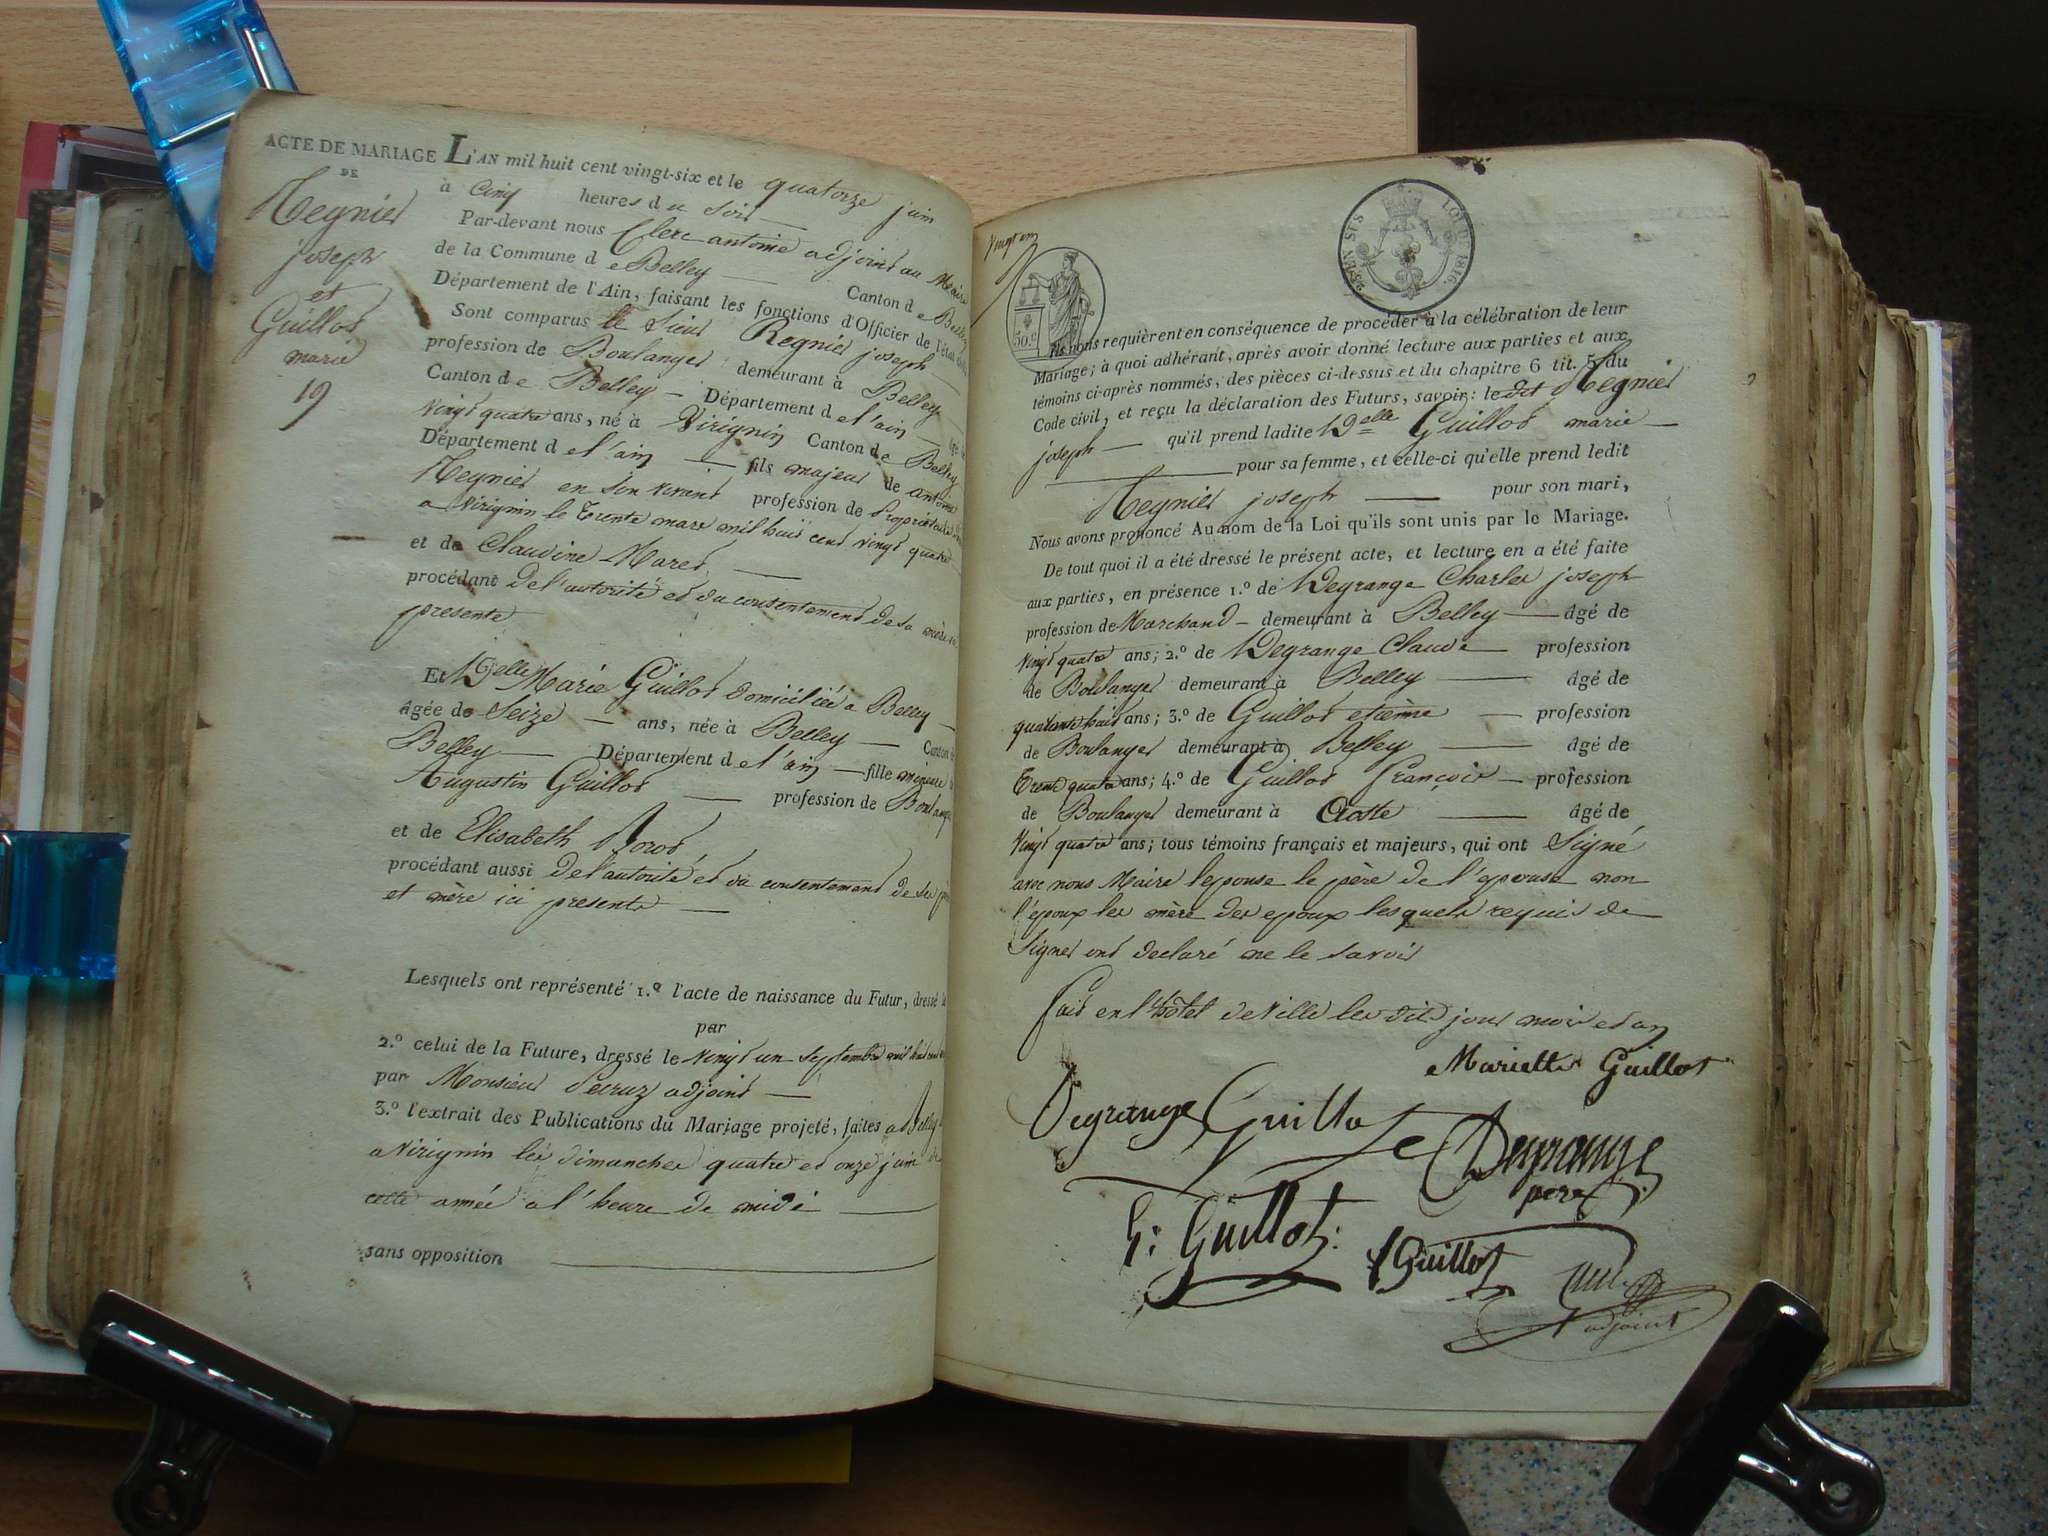 ACTE DE MARIAGE
DE
Regnier
joseph
et
Guillot
marie
19
L'AN mil huit cent vingt-six et le quatorze juin
à cinq heures du soir
Par-devant nous Clerc antoine adjoint au Maire
de la Commune de Belley Canton de Belley
Département de l'Ain, faisant les fonctions d'Officier de l'état
Sont comparus le Sieur Regnier joseph
profession de Boulanger demeurant à Belley
Canton de Belley Département de l'ain
vingt quatre ans, né à Virignin Canton de Belley
Département de l'ain fils majeur de antoine
Regnier en son vivant profession de Propriétaire
a Virignin le Trente mars mil huit cent vingt quatre
et de Claudine Maret,
procédant de l'autorité et du consentement de sa mère
presente
Et Delle Marie Guillot domiciliée a Belley
âgée de Seize ans, née à Belley Canton
Belley Département de l'ain fille mineure
Augustin Guillot profession de Boulanger
et de Elisabeth
procédant aussi de l'autorité et du consentement de ses père
et mère ici presents
Lesquels ont représenté 1.º l'acte de naissance du Futur, dressé
par
2.º celui de la Future, dressé le vingt un septembre mil huit cent
par Monsieur adjoint
3.º l'extrait des Publications du Mariage projeté, faites a Belley
a Virignin les dimanches quatre et onze juin
cette année a l'heure de midi
sans opposition
vingt un
50.c
LOI DE 1816
ils nous requièrent en conséquence de procéder à la célébration de leur
Mariage; à quoi adhérant, après avoir donné lecture aux parties et aux
témoins ci-après nommés, des pièces ci-dessus et du chapitre 6 tit. 5 du
Code civil, et reçu la déclaration des Futurs, savoir: ledit Regnier
joseph qu'il prend ladite Delle Guillot marie
pour sa femme, et celle-ci qu'elle prend ledit
Regnier joseph pour son mari,
Nous avons prononcé Au nom de la Loi qu'ils sont unis par le Mariage.
De tout quoi il a été dressé le présent acte, et lecture en a été faite
aux parties, en présence 1.º de Degrange Charles joseph
profession de Marchand demeurant à Belley âgé de
vingt quatre ans; 2.º de Degrange Claude profession
de Boulanger demeurant à Belley âgé de
quarante huit ans; 3.º de Guillot etienne profession
de Boulanger demeurant à Belley âgé de
Trente quatre ans; 4.º de Guillot françois profession
de Boulanger demeurant à Aoste âgé de
vingt quatre ans; tous témoins français et majeurs, qui ont Signé
avec nous Maire lepouse le père de l'epouse non
l'époux les mère des epoux lesquels requis de
Signer ont declaré ne le savoir
fait en l'hôtel de Ville les dits jour mois et an
Mariette Guillot
Degrange Guillot Degrange
pere
E: Guillot: f Guillot
adjoint